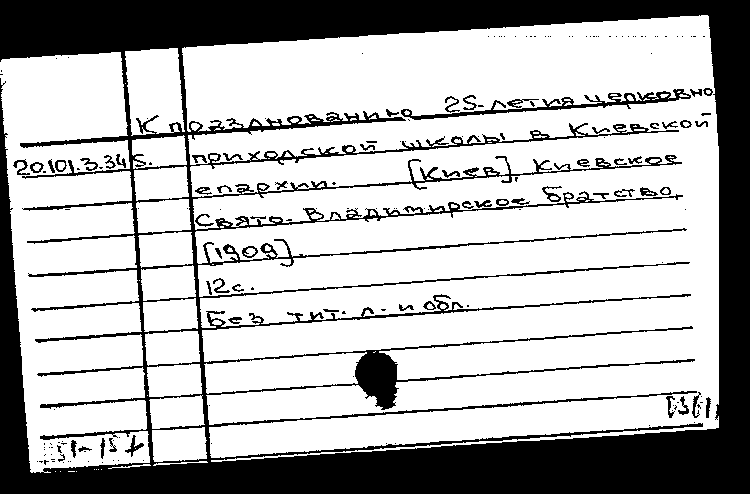 К празднованию 25-летия церковно
20.101.3.345. приходской школы в Киевской
епархии. [Киев], Киевское
Свято-Владимирское братство,
[1909].
12с.
Без тит. л. и обл.